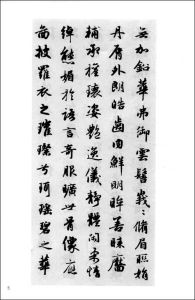 無加鉛華弗御雲髻峩〻脩眉聯娟
丹脣外朗皓齒内鮮明眸善睞靨
輔承權瓌姿艷逸儀靜體閑柔情
綽態媚於語言奇服曠世骨像應
圖披羅衣之璀璨兮珥瑤碧之華